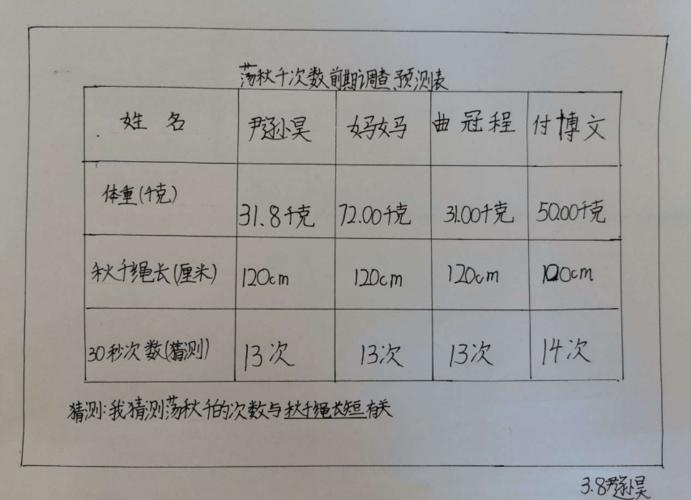 荡秋千次数前期调查预测表
姓名 尹逊昊 妈妈 曲冠程 付博文
体重(千克) 31.8千克 72.00千克 31.00千克 50.00千克
秋千绳长(厘米) 120cm 120cm 120cm 120cm
30秒次数(猜测) 13次 13次 13次 14次
猜测:我猜测荡秋千的次数与秋千绳长短有关
3.8尹逊昊